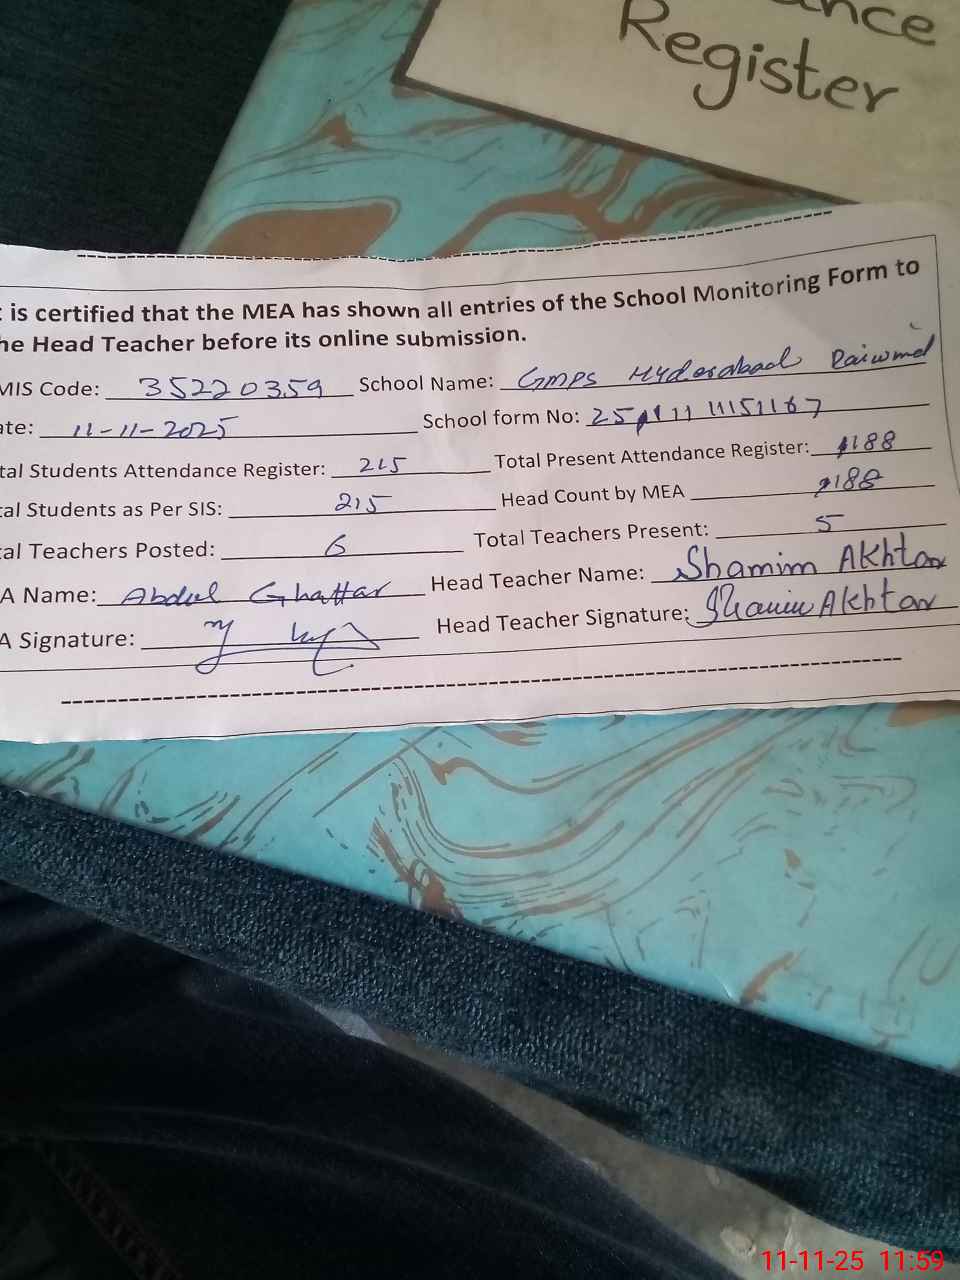 ance
Register
is certified that the MEA has shown all entries of the School Monitoring Form to
he Head Teacher before its online submission.
MIS Code: 35220359 School Name: GMPS Hyderabad Raiwind
ate: 11-11-2025 School form No:
tal Students Attendance Register: 215 Total Present Attendance Register: 188
al Students as Per SIS: 215 Head Count by MEA 188
al Teachers Posted: 6 Total Teachers Present: 5
A Name: Abdul Ghaffar Head Teacher Name: Shamim Akhtar
A Signature: Head Teacher Signature: Shamim Akhtar
11-11-25 11:59